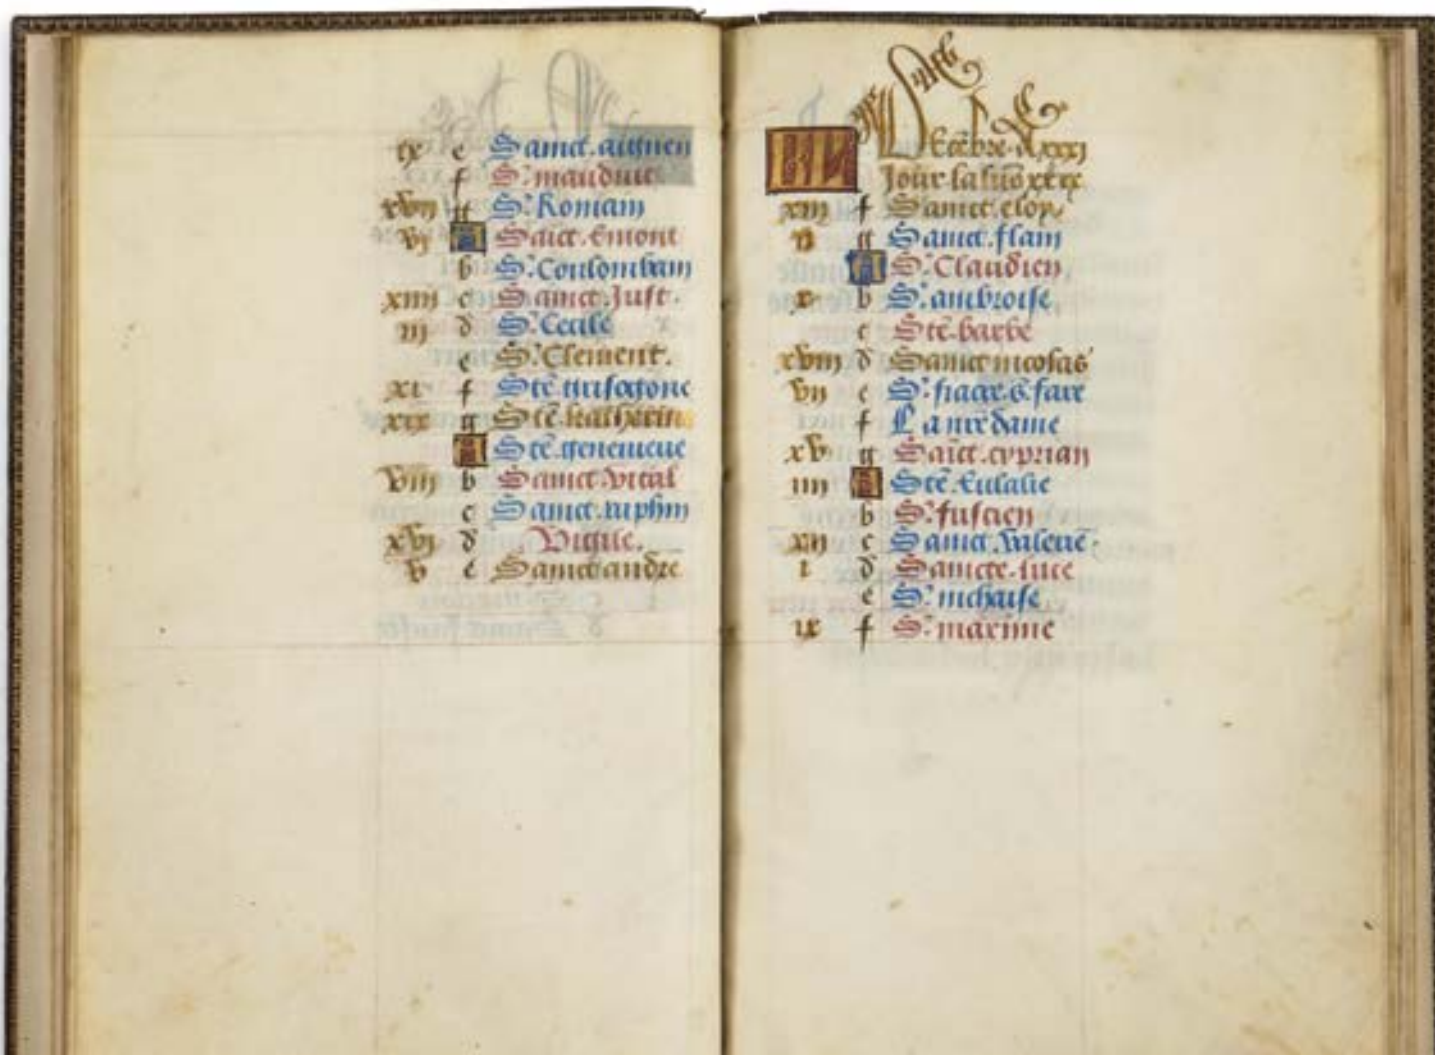 ix e Sainct. aignen
f S. mauduit
xvii g S. Romain
vi A Saict. Emont
b S. Coulomban
xiiii c Sainct. Just.
iii d S. Cecile
e S. Clement.
xi f Ste grisogone
xix g Ste katherin
A Ste. genevieve
viii b Sainct. vital
c Sainct. ruphin
xvi d Vigile.
v e Sainct andre
KL Decẽbre. a xxxi
Jour. la lune xxix
xiii f Sainct. eloy.
ii g Sainct. flam
A S. Claudien
x b S. ambroise.
c Ste. barbe
xviii d Sainct nicolas
vii e S. fiacre. s. fare
f La nrẽ dame
xv g Saict. cyprian
iiii A Ste. Eulalie
b S. fuscien
xii c Sainct. Valerie.
i d Saincte. luce
e S. nichaise
ix f S. maxime